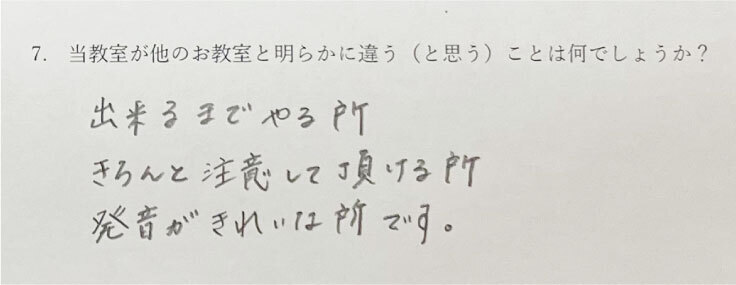 7. 当教室が他のお教室と明らかに違う（と思う）ことは何でしょうか？
出来るまでやる所
きちんと注意して頂ける所
発音がきれいな所です。